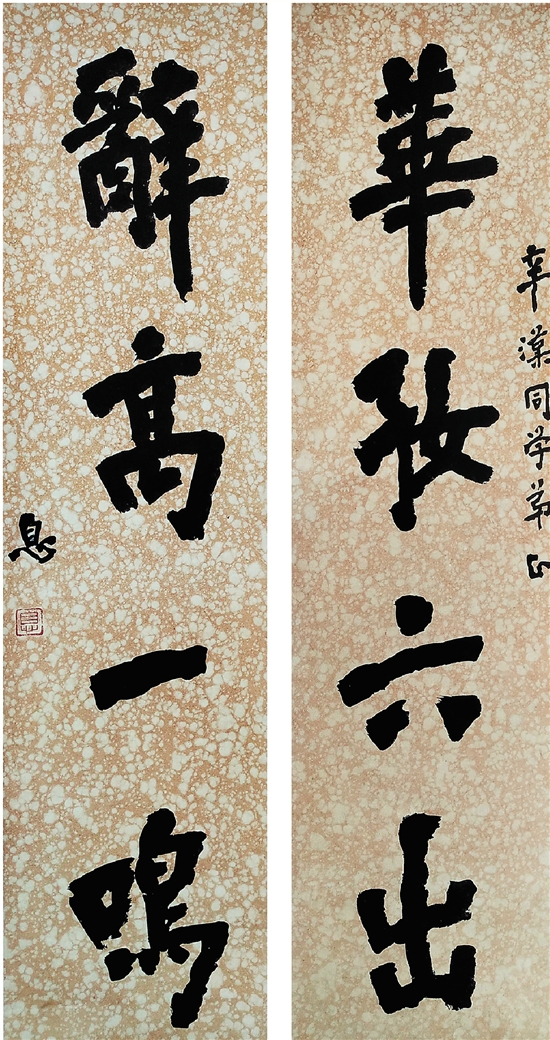 辛漢同学弟正
華 六出
辭高一鳴
息